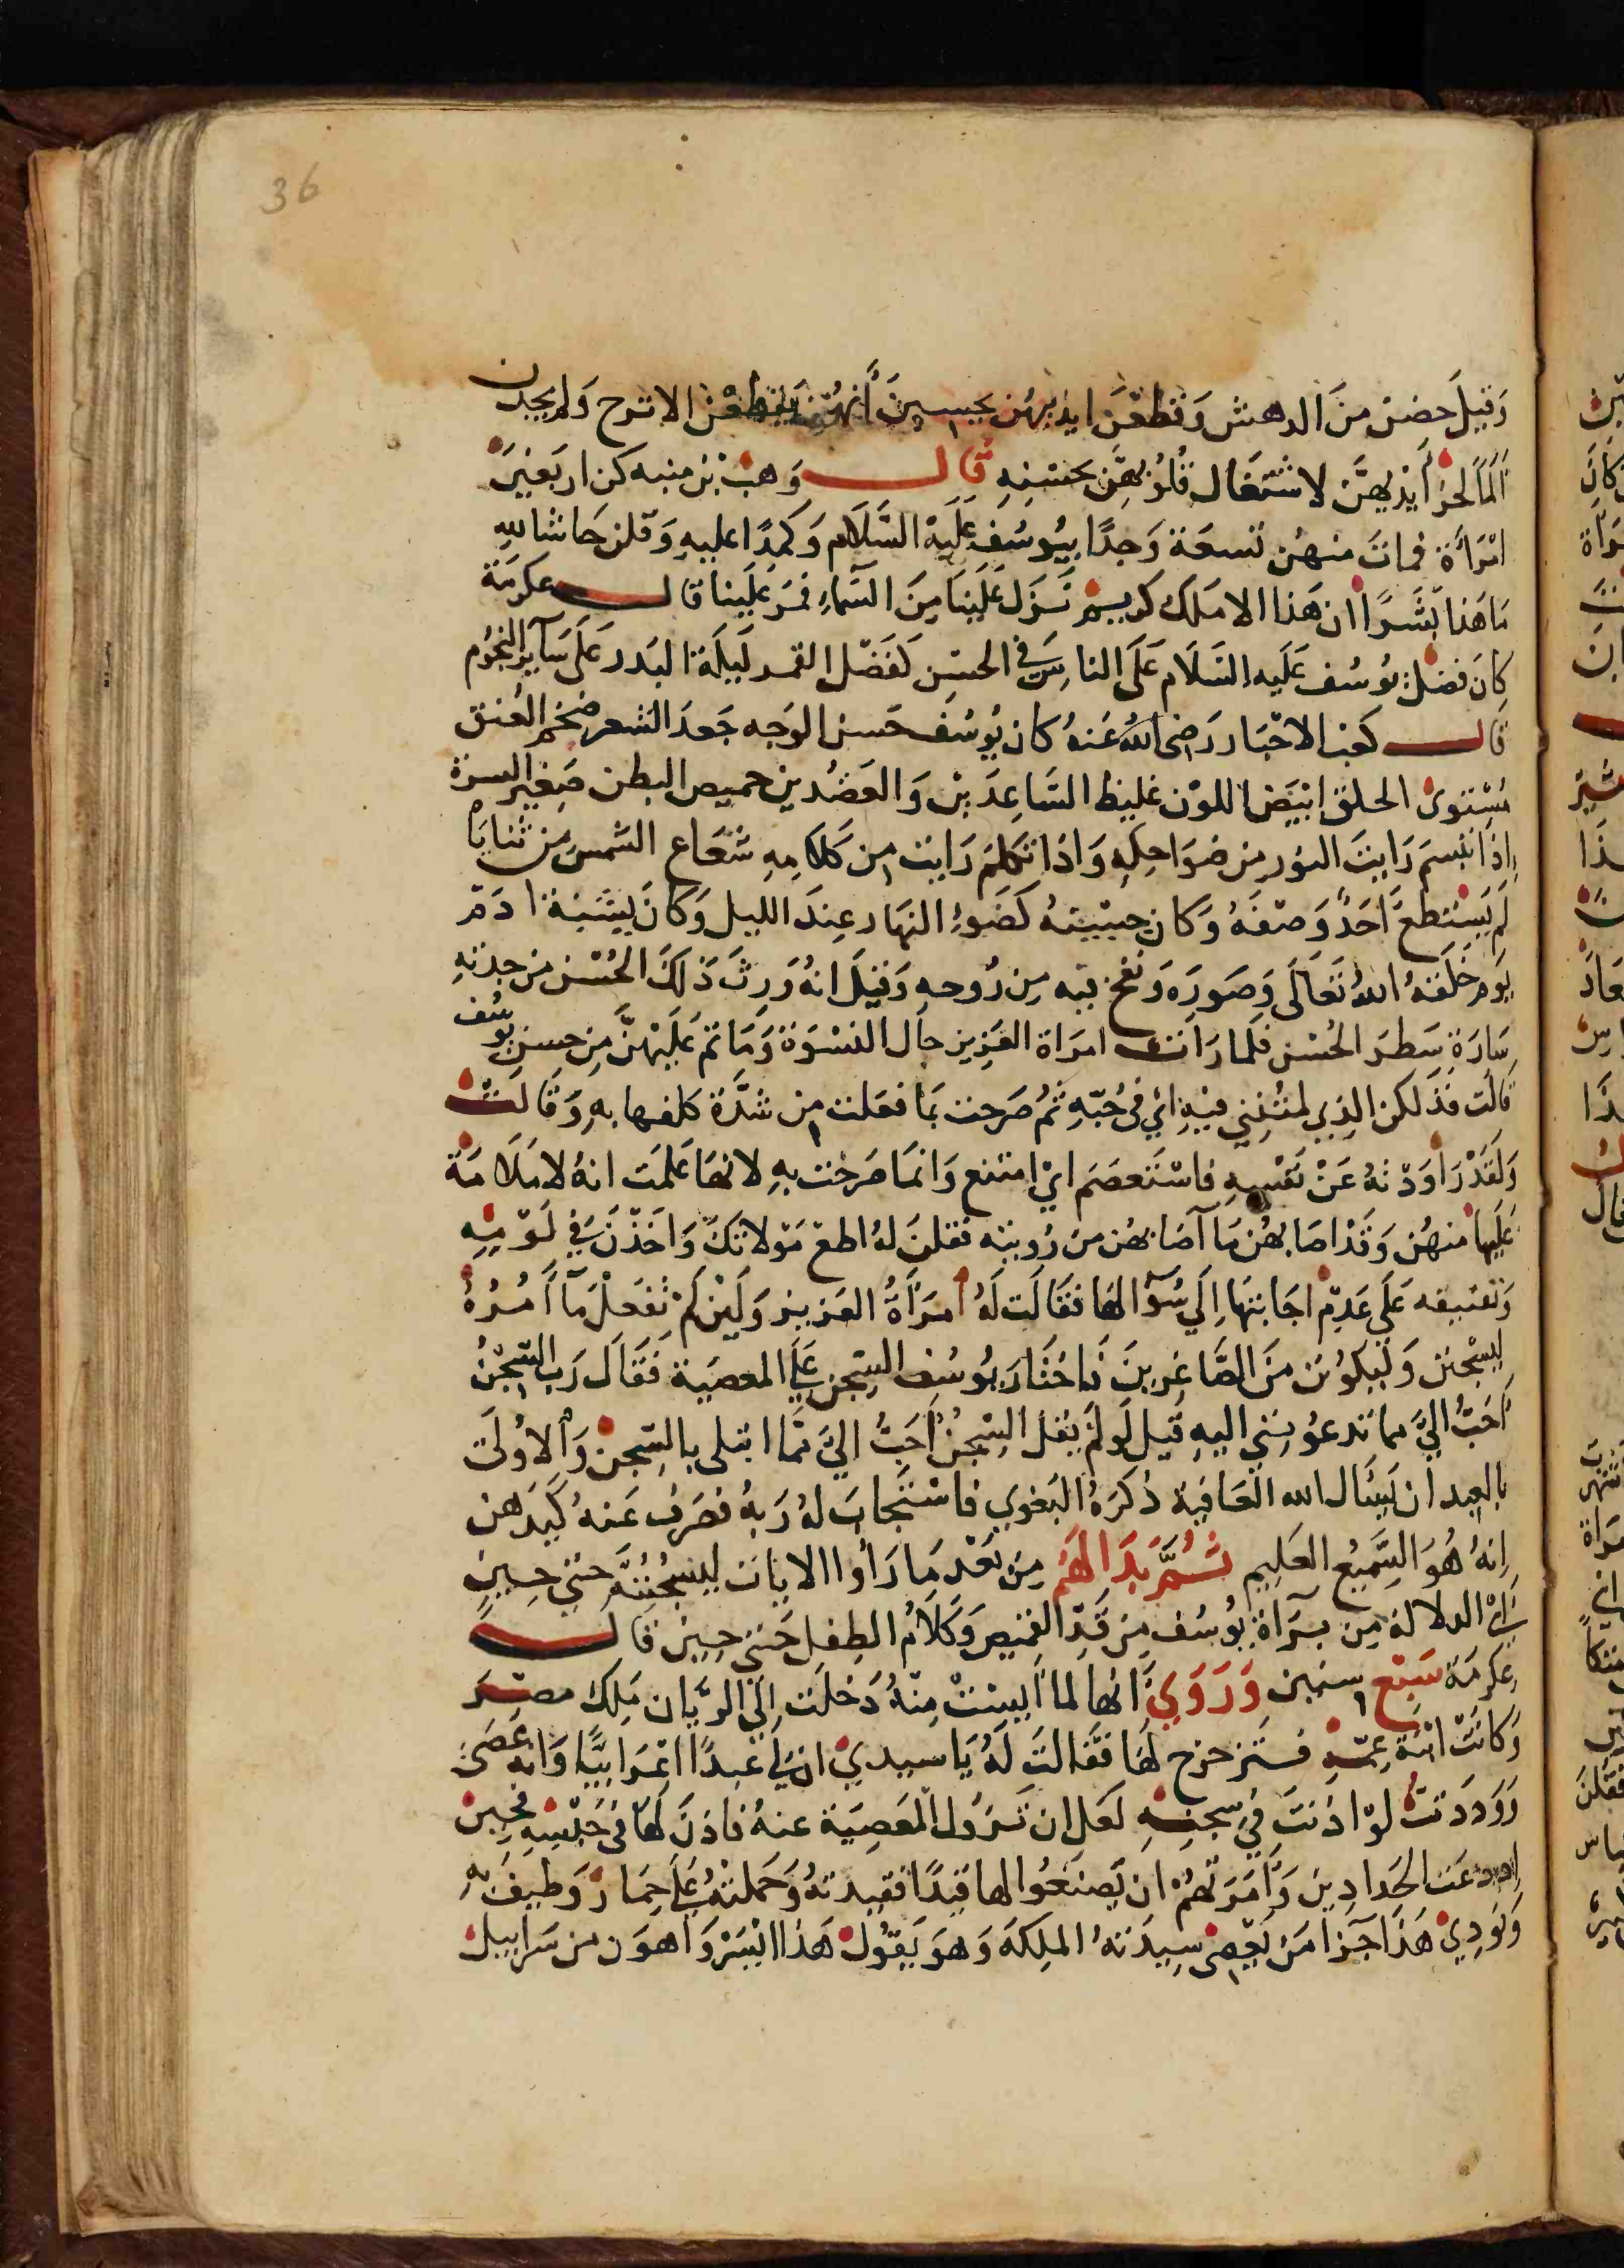 36
وَقيلَ حضن منَ الدهش وَقطعْنَ ايديهُن يحسبينَ أنهُن يقطعْن الاترج وَلم يجدن
المَا لحز أيْديهنَّ لاشتغال قلوبهِّن بحسْنهِ قال وَهبْ بْن منبه كن اربَعينَ
امْرَأة فمات منهُن تسعَة وَجدًا بيُوسُفِ علَيْهِ السَّلَام وَكمِدًا عليهِ وَقلن حَاشا للهِ
مَا هَذا بَشَرًا ان هَذا الا مَلك كريم نَزَل عَلَينَا مِنَ السَّماءِ فمَر عَلَينا قال عكرمَة
كَانَ فضل يُوسُف عَلَيه السَّلَام عَلى الناسِ في الحسْن كفَضل القمر ليلَة البَدر عَلى سَآير النجُوم
قال كعْب الاحْبَار رَضى اللهُ عَنهُ كان يُوسُف حَسن الوَجه جَعد الشعر ضخم العُنق
مسْتوى الحلق ابْيَض اللوْن غليظ السَّاعِدَين وَالعَضُدين خميص البطن صَغير السرة
اِذا تبسمَ رَايتَ النور من ضوَاحِكهِ وَاذا تكلمَ رَايت من كَلامِهِ شعَاع الشمسِ من ثنايَاهُ
لم يَسْتطع أحَدٌ وَصْفهُ وَكان حسْنهُ كَضوءِ النهَار عِندَ الليل وَكانَ يشبهُ ادَمَ
يَوم خَلَقهُ اللهُ تعَالَى وَصَورَه وَنفخ فيه مِن رُوحهِ وَقيلَ انهُ وَرِثَ ذَلكَ الحُسْن من جدتهِ
سَارَة سَطر الحُسْن فلما رَات امرَاة العَزيز حَال النسْوَة وَمَا تم عَليْهنَّ مِن حسن يُوسُف
قالت فذَلكن الذِي لمتُنِني فيْهِ ايْ في حُبّهِ ثمُ صَرحت بمَا فعَلت من شدَّة كلفها بهِ وَقَالت
وَلقَدْ رَاوَدْتهُ عَنْ نفْسهِ فاسْتَعصَمَ ايْ امتنع وَانمَا صَرحْت بهِ لانهَا عَلمَت انهُ لا مَلَامَة
عَلَيها منهُن وَقدْ اصَابهُن مَا اصَابهُن من رُويتهِ فقلنَ لهُ اطعْ مَوْلاتكَ وَاخَذْنَ في لَوْمِهِ
وَتعنيفه عَلَى عَدمِ اجَابتهَا اِلَي سُؤالهَا فقَالت لَهُ امرَأةُ العَزيز وَلَينْ لَم يَفعَلْ مَآ أمُرُهُ
ليسْجَنن وَليكونن منَ الصَّاغرينَ فَاختَارَ يُوسُف السّجن عَلَى المعصَية فقَال رَب السّجْنُ
أحَبُّ اليَّ مما تدعُوننِي اليهِ قيل لَو لَمْ يَقل السّجْنُ أحَبُّ اليَّ مَّا ابتلى بالسّجن وَالاوْلَى
بالعبد ان يَسْأل الله العَافية ذكَرَهُ البَغوي فاسْتَجابَ لهُ رَبهُ فصَرف عَنهُ كَيدَهن
اِنهُ هُوَ السَّمِيعُ العَلِيم ثمُ بَدَا لهَمُ مِن بَعْد مَا رَأوا الايَات ليسْجُنُنَّه حَتى حِينِ
الدلالة مِن بَرآة يُوسُف من قدِّ القميص وَكَلَامُ الطِفل حَتى حِين قال
عِكرمَة سَبْع سِنين وَرَوَيَ انها لما ايسَتْ مِنْهُ دَخلَت اِلَي الرَّيَّان مَلِك مصْر
وَكانَتْ ابنَة عمّهِ فتزَحزح لهَا فقَالَت لَهُ يَا سيدي ان لي عَبدًا اعْرَابيًّا وَانهُ عَصَى
وَوَدَدتُ لَوْ اذنتَ في سجنهِ لعَل ان تزوُل المعَصِيَة عنهُ فاذنَ لهَا في حَبسِه فحين
دعَت الحَدادِين وَأمَرَتهُمْ ان يَصنعُوا لها قيدًا فقيدتهُ وَحَملتهُ عَلَى حمَار وَطيفَ بهِ
وَنودِيْ هَذا جَزا مَن يَعصى سِيدَتهُ المَلِكةَ وَهوَ يَقوُل هَذا ايْسَر وَاهوَن من سَرَابيل